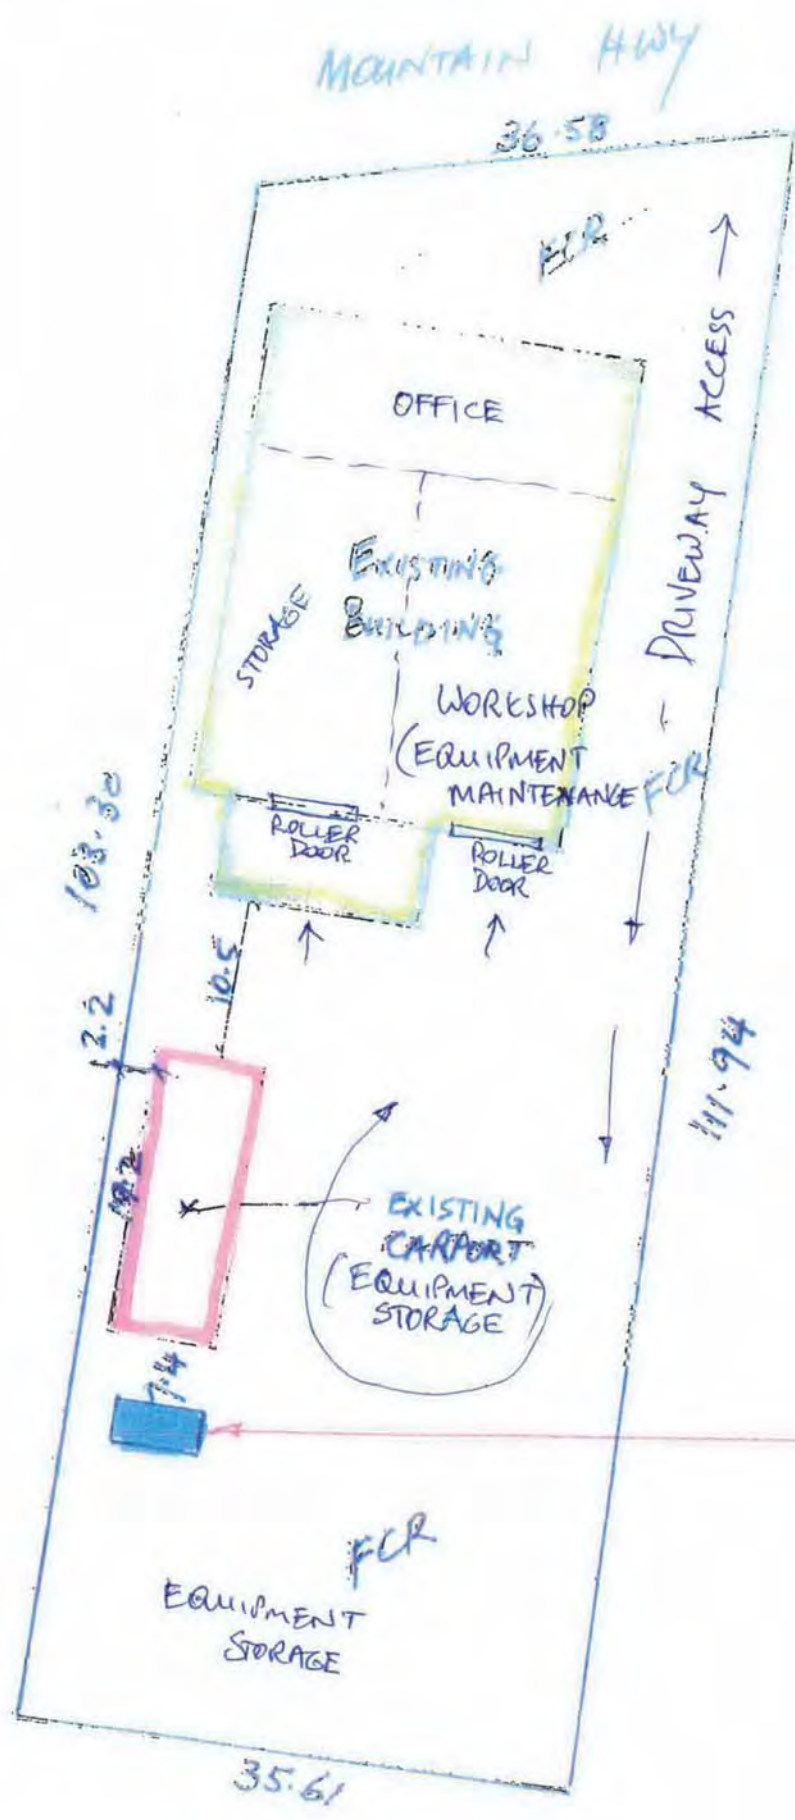 MOUNTAIN HWY
36.58
FCR
OFFICE
DRIVEWAY ACCESS
EXISTING
BUILDING
STORAGE
WORKSHOP
(EQUIPMENT
MAINTENANCE
FCR
ROLLER
DOOR
ROLLER
DOOR
103.30
10.5
2.2
111.94
EXISTING
CARPORT
(EQUIPMENT)
STORAGE
7.4
FCR
EQUIPMENT
STORAGE
35.61